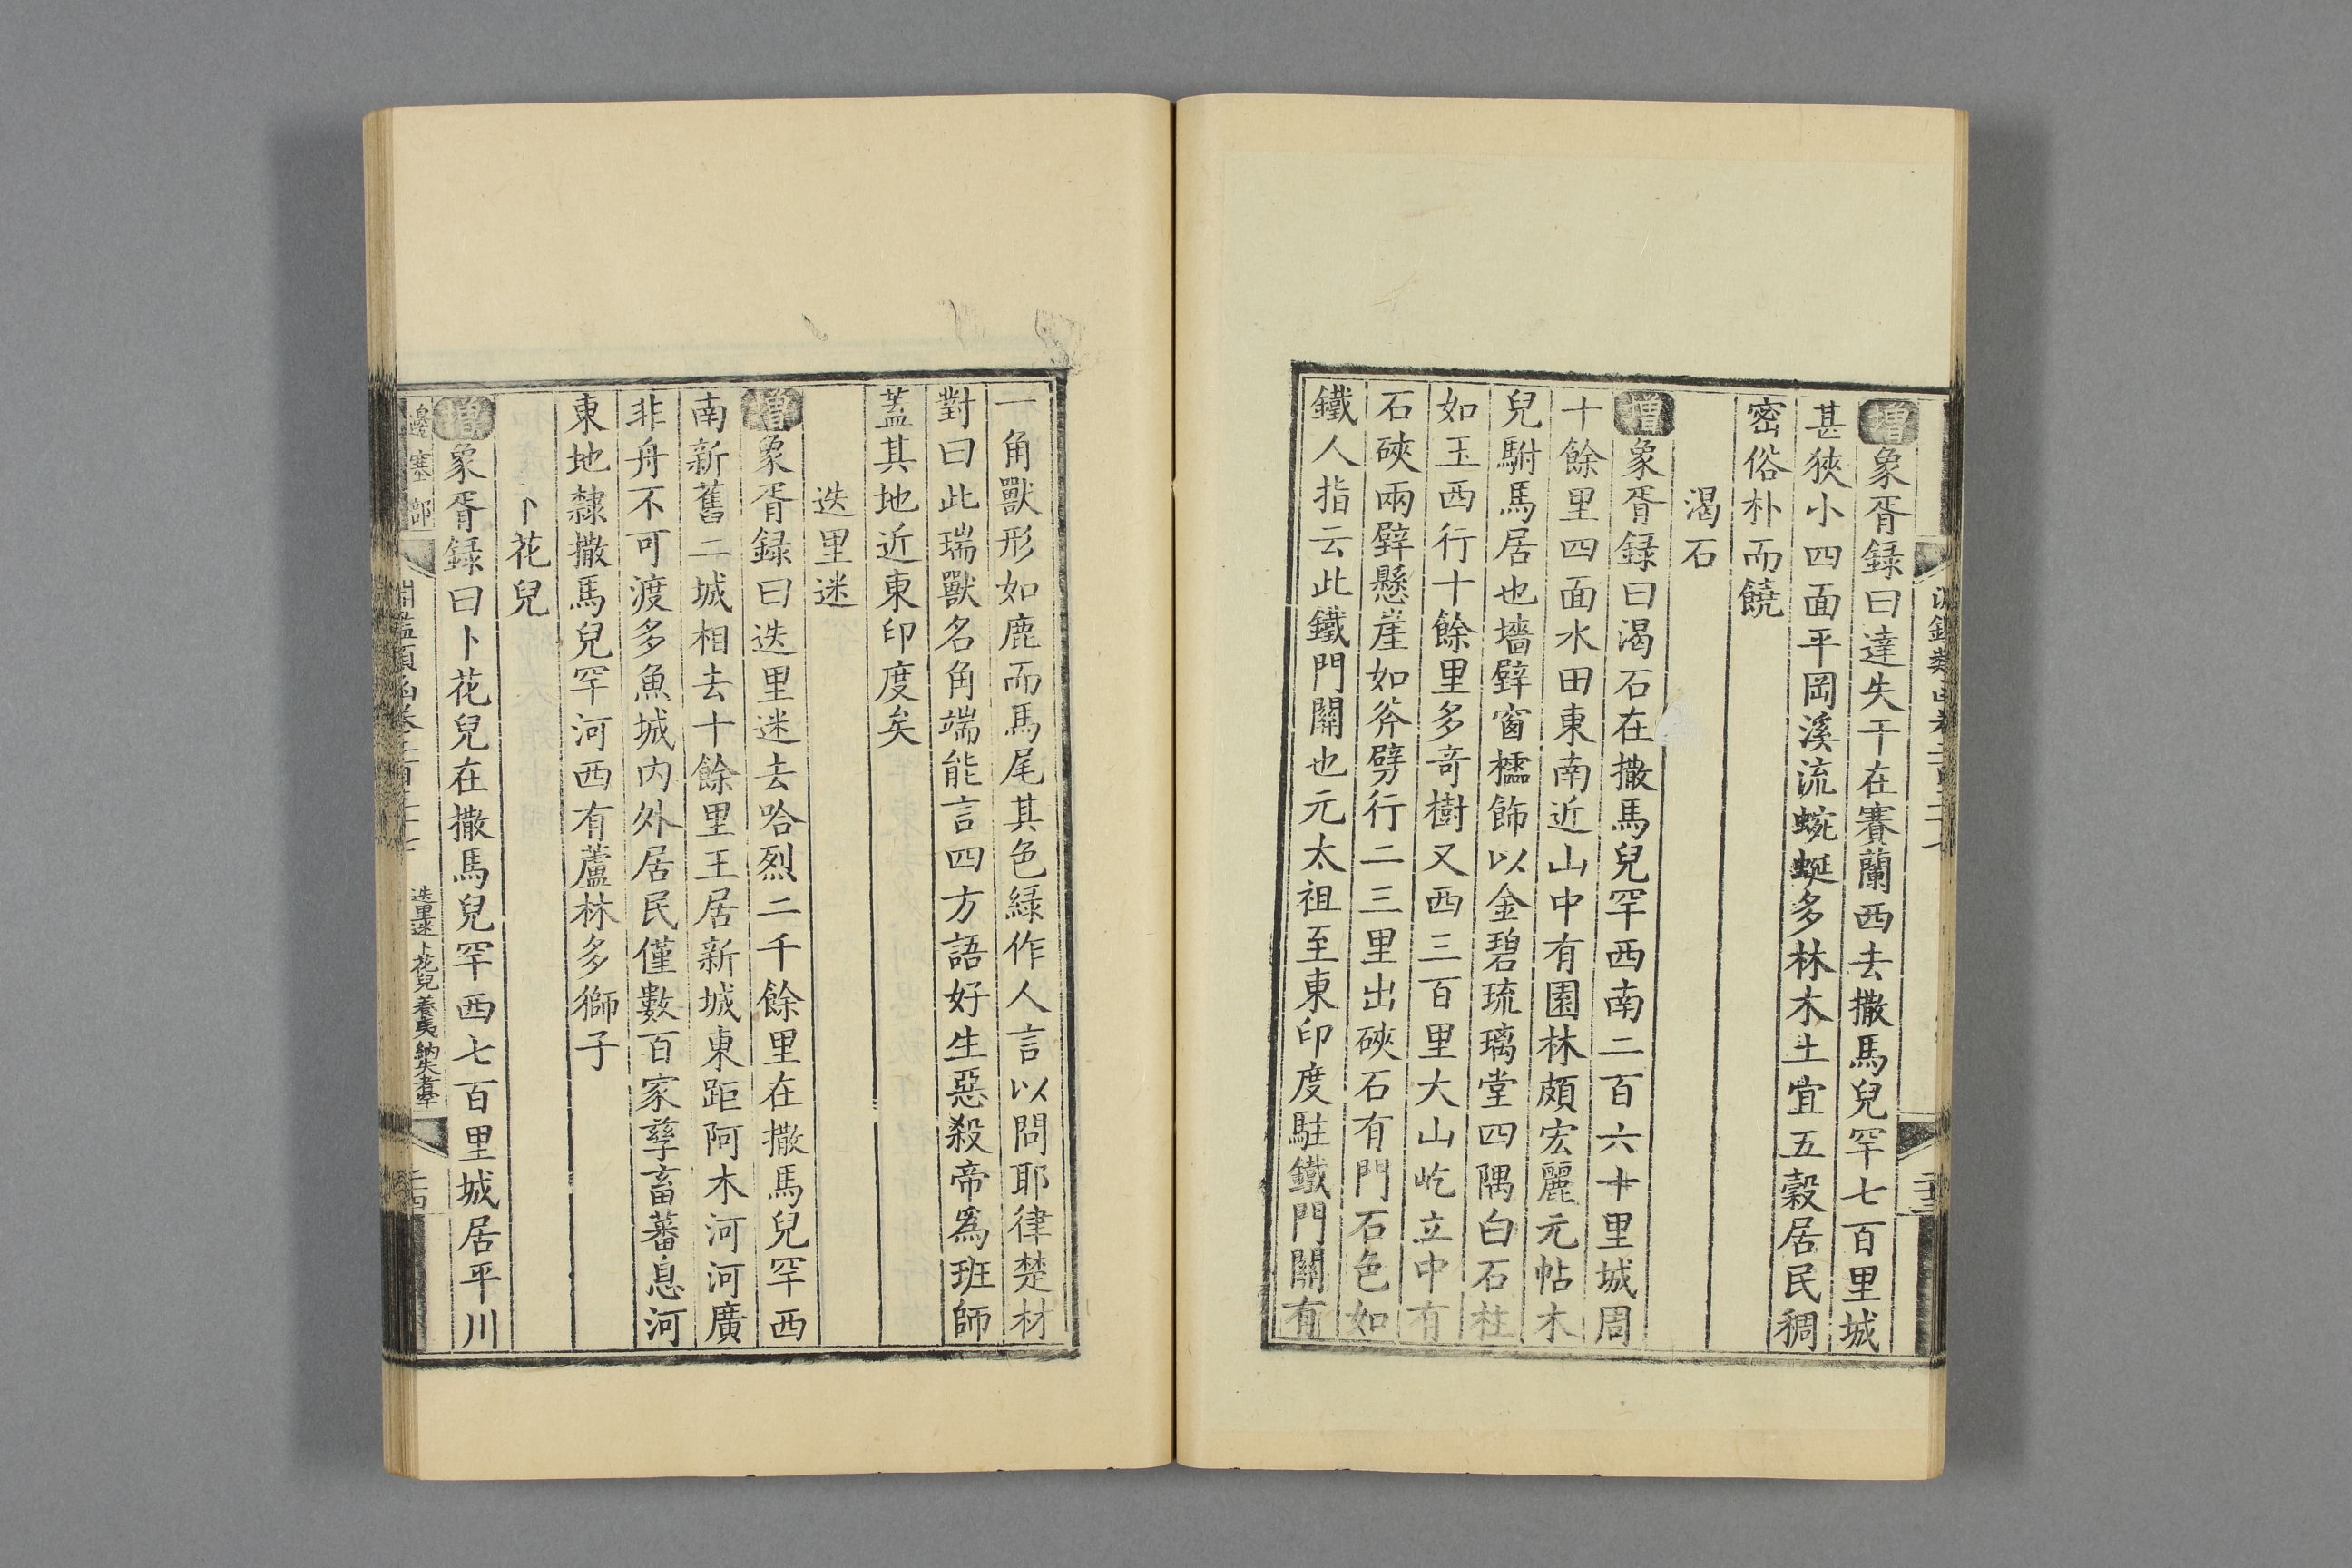 增象胥録曰達失干在賽蘭西去撒馬兒罕七百里城
甚狹小四面平岡溪流蜿蜒多林木土宜五穀居民稠
密俗朴而饒
渴石
增象胥録曰渴石在撒馬兒罕西南二百六十里城周
十餘里四面水田東南近山中有園林頗宏麗元帖木
兒駙馬居也墻壁窗櫺飾以金碧琉璃堂四隅白石柱
如玉西行十餘里多奇樹又西三百里大山屹立中有
石硤兩壁懸崖如斧劈行二三里出硤石有門石色如
鐵人指云此鐵門關也元太祖至東印度駐鐵門關有
一角獸形如鹿而馬尾其色緑作人言以問耶律楚材
對曰此瑞獸名角端能言四方語好生惡殺帝爲班師
蓋其地近東印度矣
迭里迷
增象胥録曰迭里迷去哈烈二千餘里在撒馬兒罕西
南新舊二城相去十餘里王居新城東距阿木河河廣
非舟不可渡多魚城内外居民僅數百家孳畜蕃息河
東地隸撒馬兒罕河西有蘆林多獅子
卜花兒
增象胥録曰卜花兒在撒馬兒罕西七百里城居平川
邊塞部
淵鑑類函卷二百三十七
迭里迷 卜花兒 養夷 納失者罕
二十四